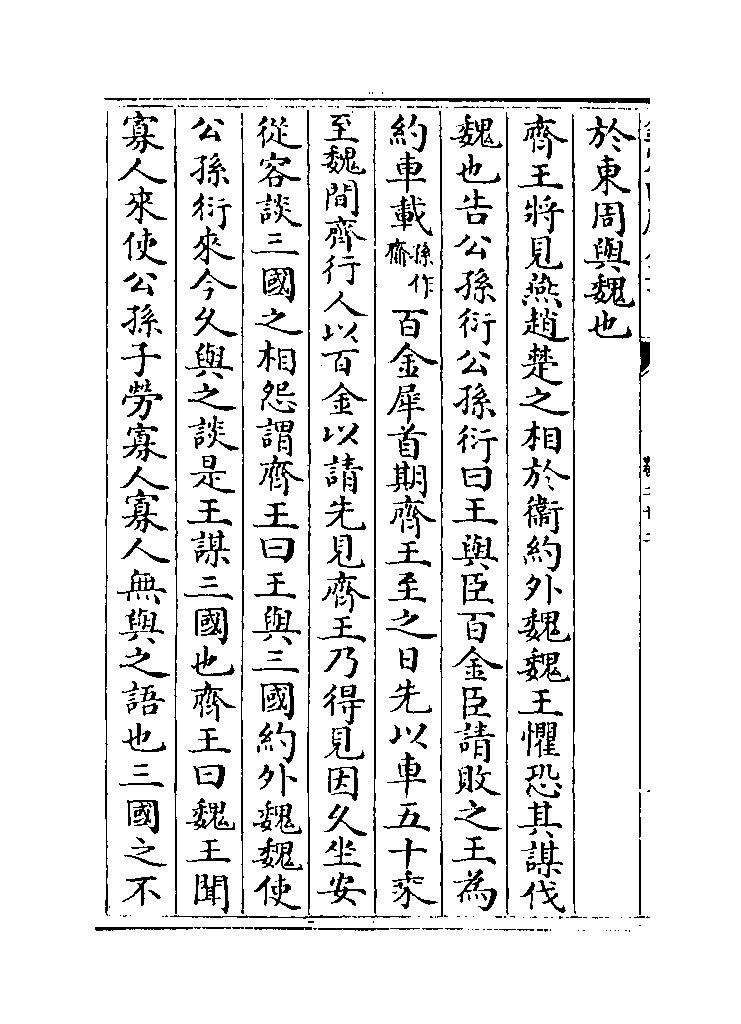 於東周與魏也
齊王將見燕趙楚之相於衞約外魏魏王懼恐其謀伐
魏也告公孫衍公孫衍曰王與臣百金臣請敗之王為
約車載孫作齊百金犀首期齊王至之日先以車五十乘
至魏間齊行人以百金以請先見齊王乃得見因久坐安
從容談三國之相怨謂齊王曰王與三國約外魏魏使
公孫衍來今久與之談是王謀三國也齊王曰魏王聞
寡人來使公孫子勞寡人寡人無與之語也三國之不